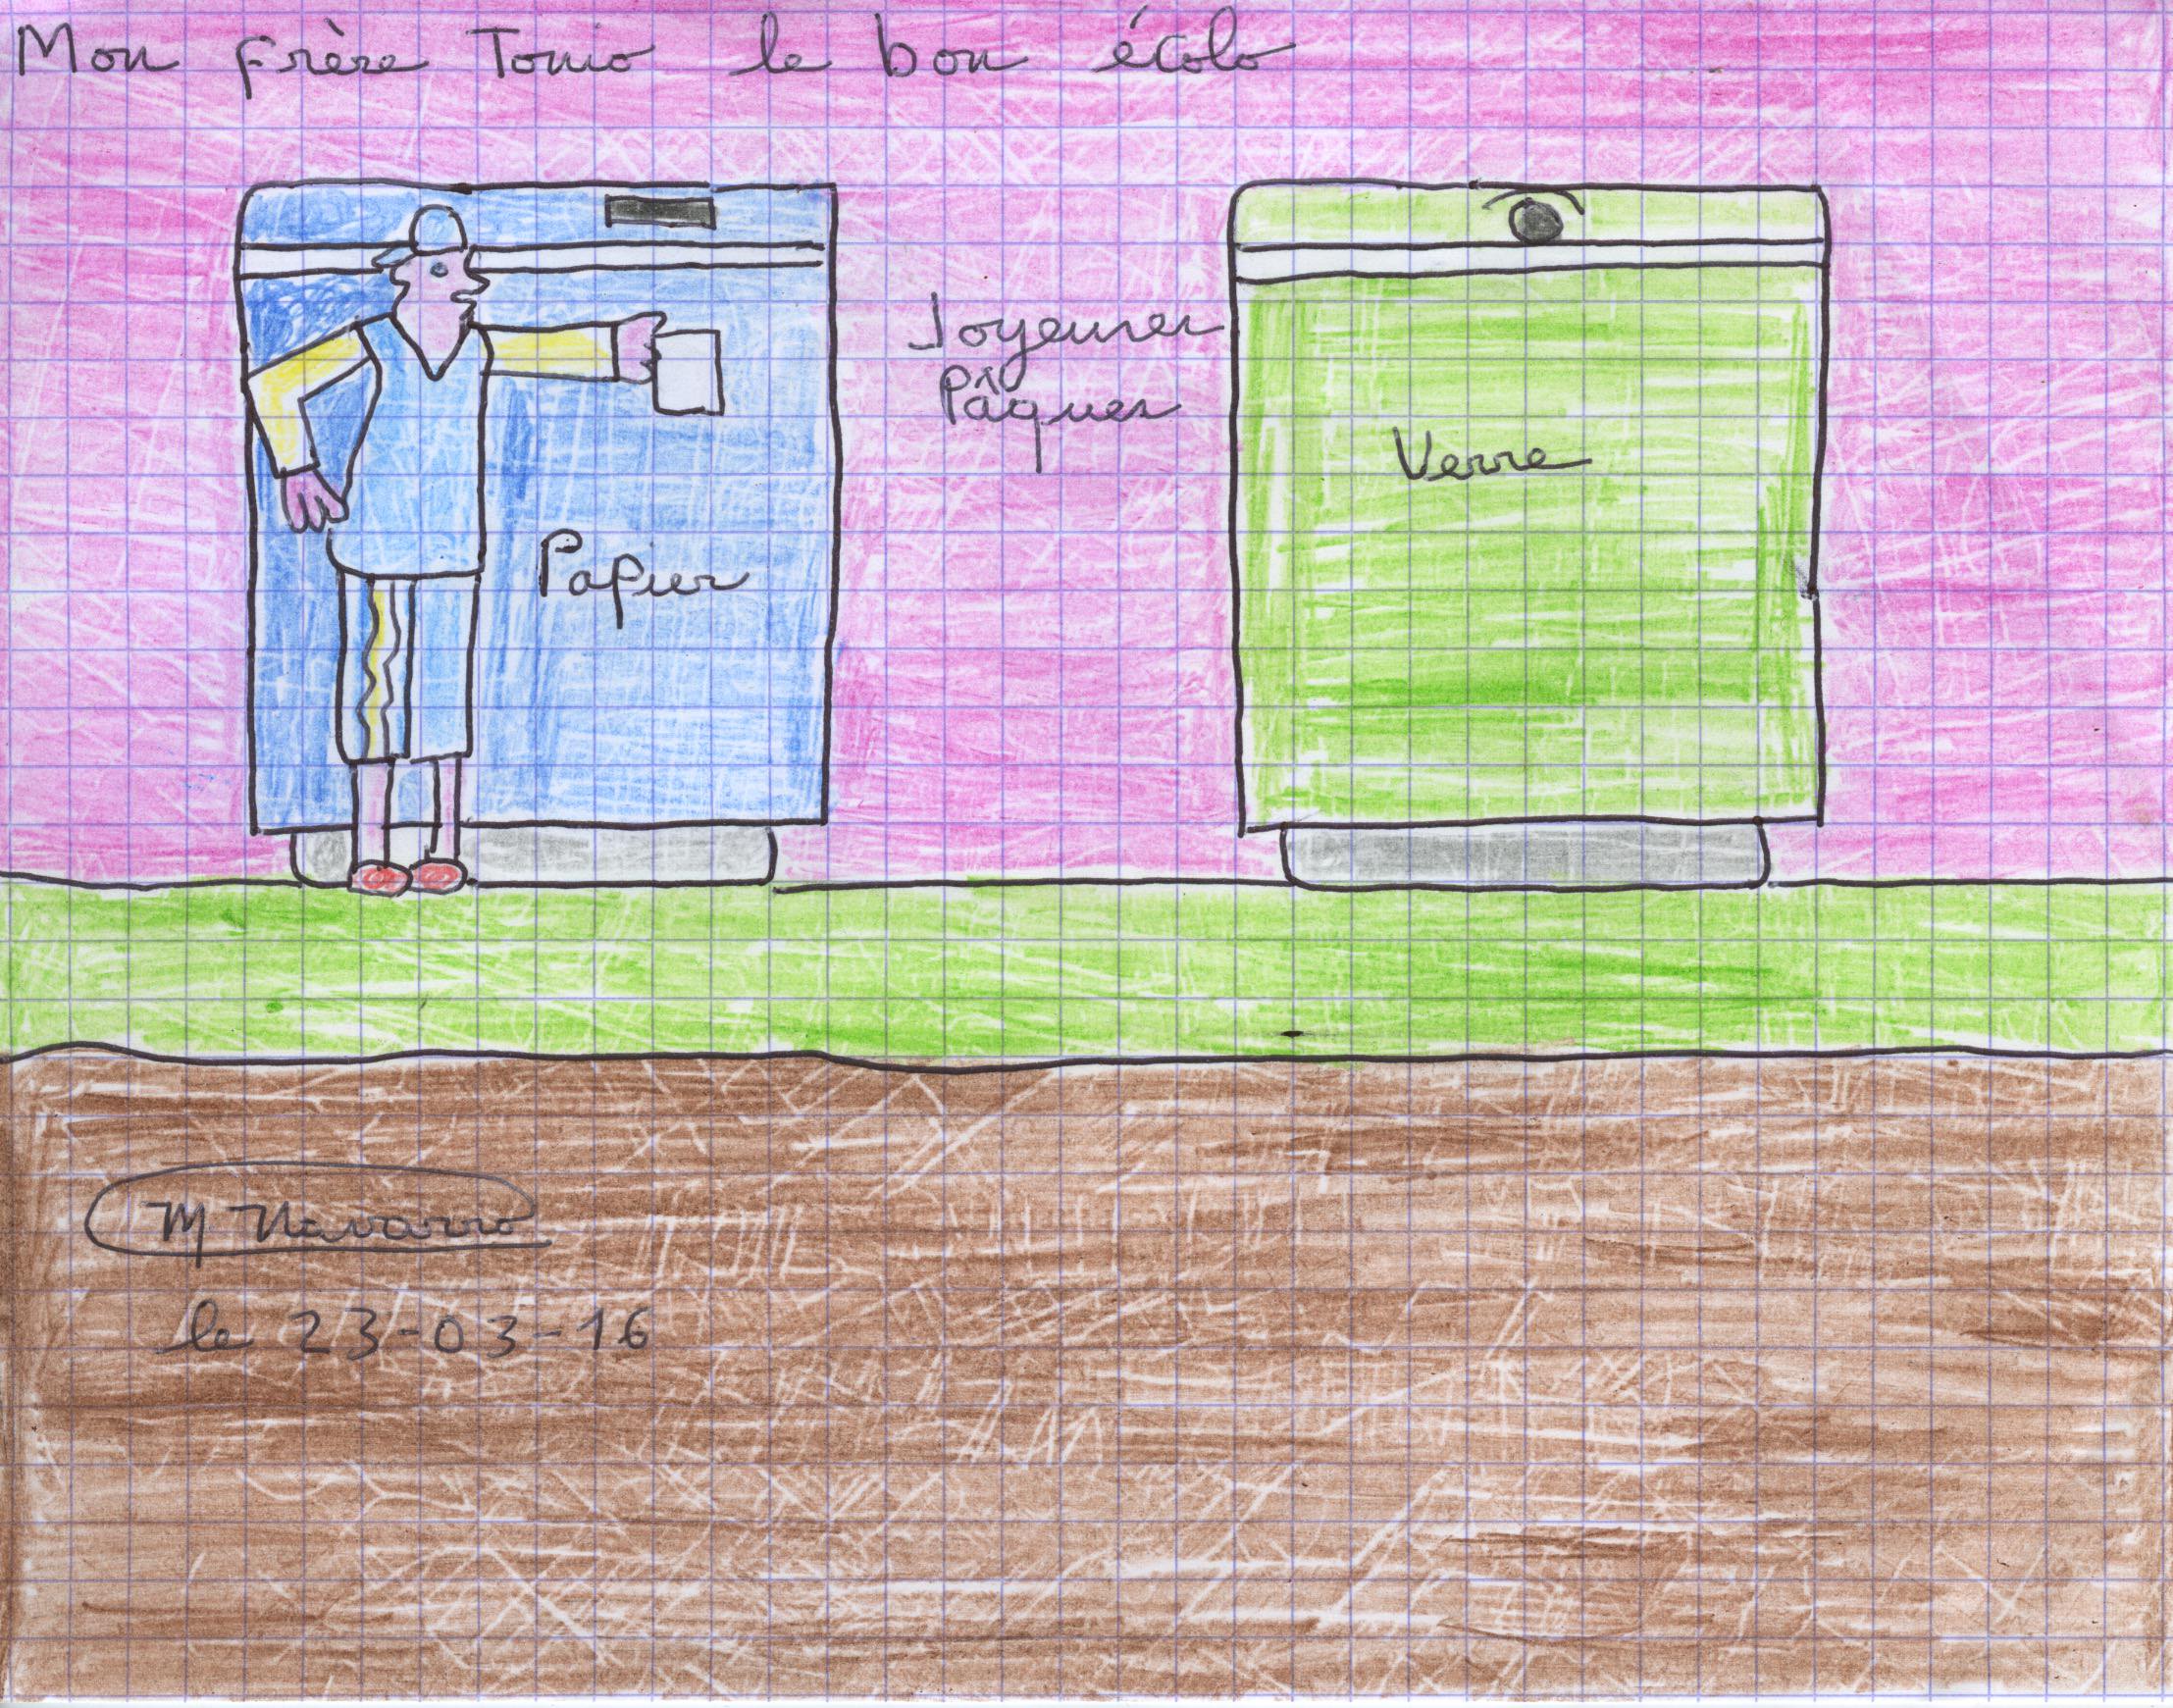 Mon frère Tonio le bon écolo
Joyeuses
Pâques
Verre
Papier
M Navarro
le 23-03-16